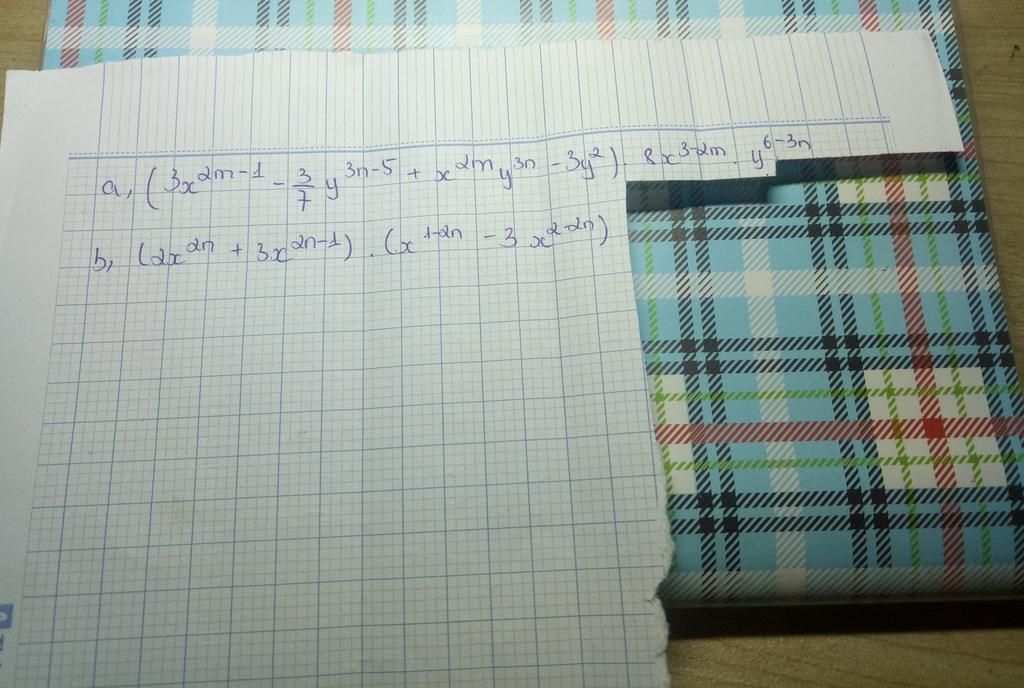 a, (3x^{2m-1} - \frac{3}{7} y^{3n-5} + x^{2m} y^{3n} - 3y^2) . 8x^{3-2m} . y^{6-3n}
b, (2x^{2n} + 3x^{2n-1}) . (x^{1-2n} - 3 x^{2-2n})